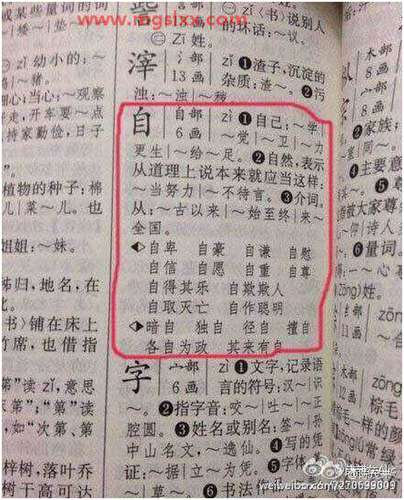 www.mgslxx.com
或某些量词的词
zǐ 幼小的:~
|~猪。
当心:~观察
开车要~点
持家勤俭,日子
植物的种子:棉
儿|菜~儿。也
姐姐:~妹。
秭归,地名,在
〈书〉铺在床上
竹席,也借指
第”读 zǐ,意思
“第”读
如“次第、第
梓树,落叶乔
zǐ〈书〉说别人
的坏话:~议。
㊁ zǐ 姓。
滓 氵部 13画 zǐ ❶渣子,沉淀的
杂质:渣~。❷污
浊:~浊|~秽。
自 自部 6画 zì ❶自己:~学|
~觉|~卫|~力
更生|~给~足。❷自然,表示
从道理上说本来就应当这样:
~当努力|~不待言。❸介词。
从:~古以来|~始至终|来~
全国。
◆自卑 自豪 自谦 自慰
自信 自愿 自重 自尊
自得其乐 自欺欺人
自取灭亡 自作聪明
◆暗自 独自 径自 擅自
各自为政 其来有自
字 宀部 6画 zì ❶文字,记录语
言的符号:汉~|识
~。❷指字音:咬~|吐~|正
腔圆。❸姓名或别名:签~|孙
中山名文,~逸仙。❹写的凭
证:~据|立~为凭。❺字体
❻书法
木部
8画
❷家族:
❹主要
被大家尊
~师|诗人
❻量词。
(Zōng)姓。
zōng
棕毛
weibo.com/7270699009